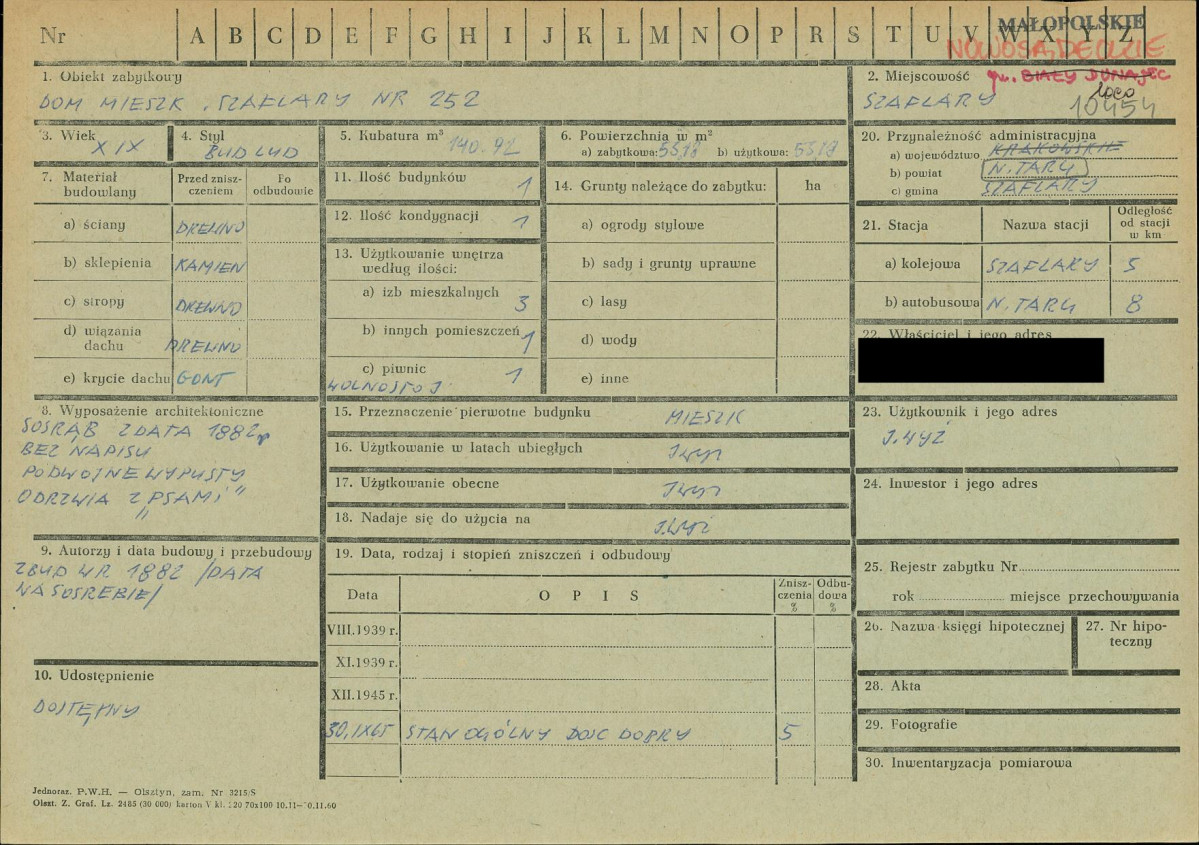 Nr A B C D E F G H I J K L M N O P R S T U V W X Y Z
MAŁOPOLSKIE
NOWOSĄDECKIE
1. Obiekt zabytkowy
DOM MIESZK. SZAFLARY NR 252
2. Miejscowość gm. BIAŁY DUNAJEC
loco
SZAFLARY 10454
3. Wiek
XIX
4. Styl
BUD LUD
5. Kubatura m³
140.92
6. Powierzchnia w m²
a) zabytkowa: 55,18 b) użytkowa: 55,18
20. Przynależność administracyjna
a) województwo KRAKOWSKIE
b) powiat N. TARG
c) gmina SZAFLARY
7. Materiał budowlany
Przed zniszczeniem
Po odbudowie
a) ściany DREWNO
b) sklepienia KAMIEN
c) stropy DREWNO
d) wiązania dachu DREWNO
e) krycie dachu GONT
11. Ilość budynków 1
12. Ilość kondygnacji 1
13. Użytkowanie wnętrza według ilości:
a) izb mieszkalnych 3
b) innych pomieszczeń 1
c) piwnic 1
WOLNOSTOJ.
14. Grunty należące do zabytku: ha
a) ogrody stylowe
b) sady i grunty uprawne
c) lasy
d) wody
e) inne
21. Stacja
Nazwa stacji
Odległość od stacji w km
a) kolejowa SZAFLARY 5
b) autobusowa N. TARG 8
22. Właściciel i jego adres
8. Wyposażenie architektoniczne
SOSRĄB Z DATA 1882
BEZ NAPISU
PODWOJNE WYPUSTY
ODRZWIA Z „PSAMI"
15. Przeznaczenie pierwotne budynku MIESZK
16. Użytkowanie w latach ubiegłych
17. Użytkowanie obecne
18. Nadaje się do użycia na
23. Użytkownik i jego adres
J. WYŻ
24. Inwestor i jego adres
9. Autorzy i data budowy i przebudowy
ZBUD W R 1882 /DATA
NA SOSREBIE/
19. Data, rodzaj i stopień zniszczeń i odbudowy
Data
OPIS
Zniszczenia %
Odbudowa %
VIII.1939 r.
XI.1939 r.
XII.1945 r.
30.IX65 STAN OGÓLNY DOSC DOBRY 5
25. Rejestr zabytku Nr
rok miejsce przechowywania
26. Nazwa księgi hipotecznej
27. Nr hipoteczny
28. Akta
29. Fotografie
30. Inwentaryzacja pomiarowa
10. Udostępnienie
DOSTĘPNY
Jednoraz. P.W.H. — Olsztyn, zam. Nr 3215/S
Olszt. Z. Graf. Lz. 2485 (30 000) karton V kl. 220 70x100 10.11—